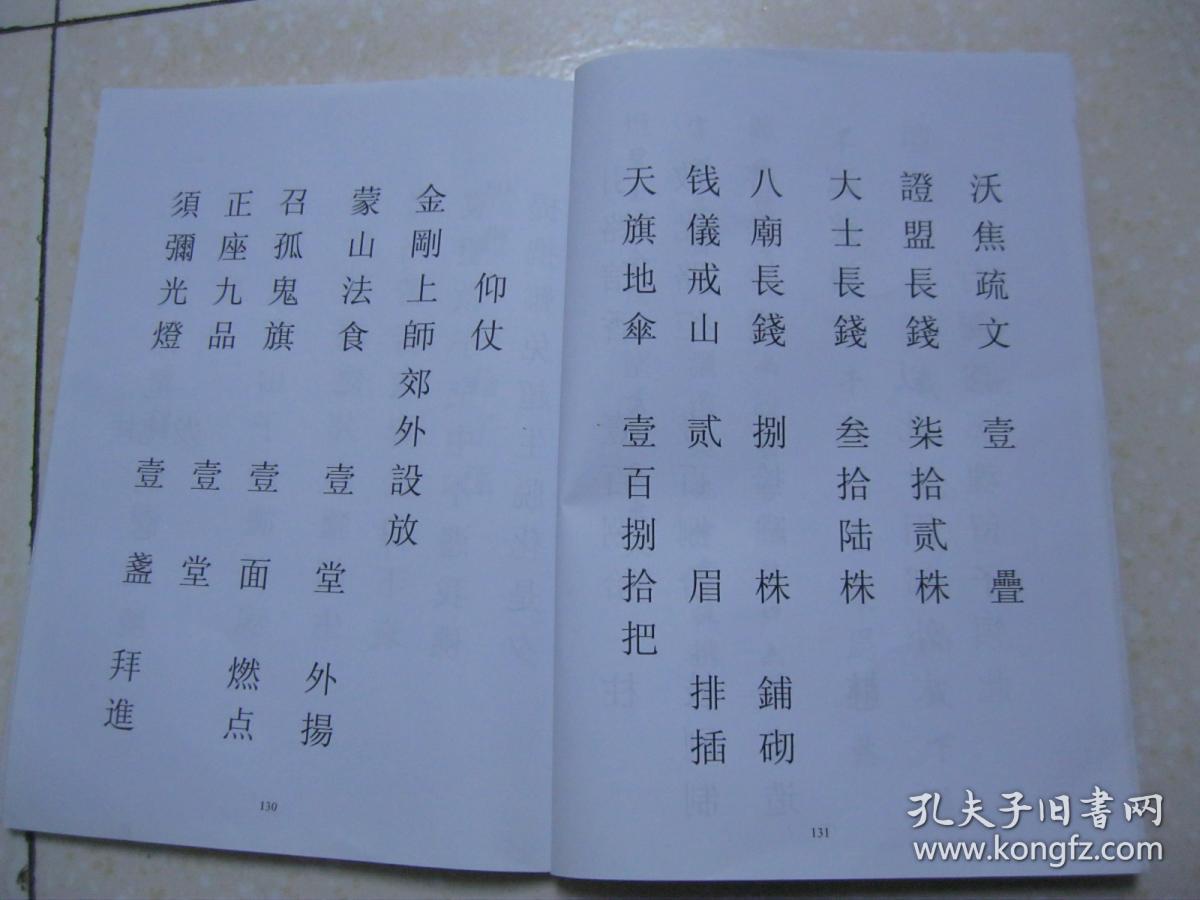 仰杖
金剛上師郊外設放
蒙山法食 壹 堂 外揚
召孤鬼旗 壹 面 燃点
正座九品 壹 堂
須彌光燈 壹 盞 拜進
130
沃焦疏文 壹 疊
證盟長錢 柒拾贰株
大士長錢 叁拾陆株
八廟長錢 捌 株 鋪砌
钱儀戒山 贰 眉 排插
天旗地傘 壹百捌拾把
131
孔夫子旧书网
www.kongfz.com